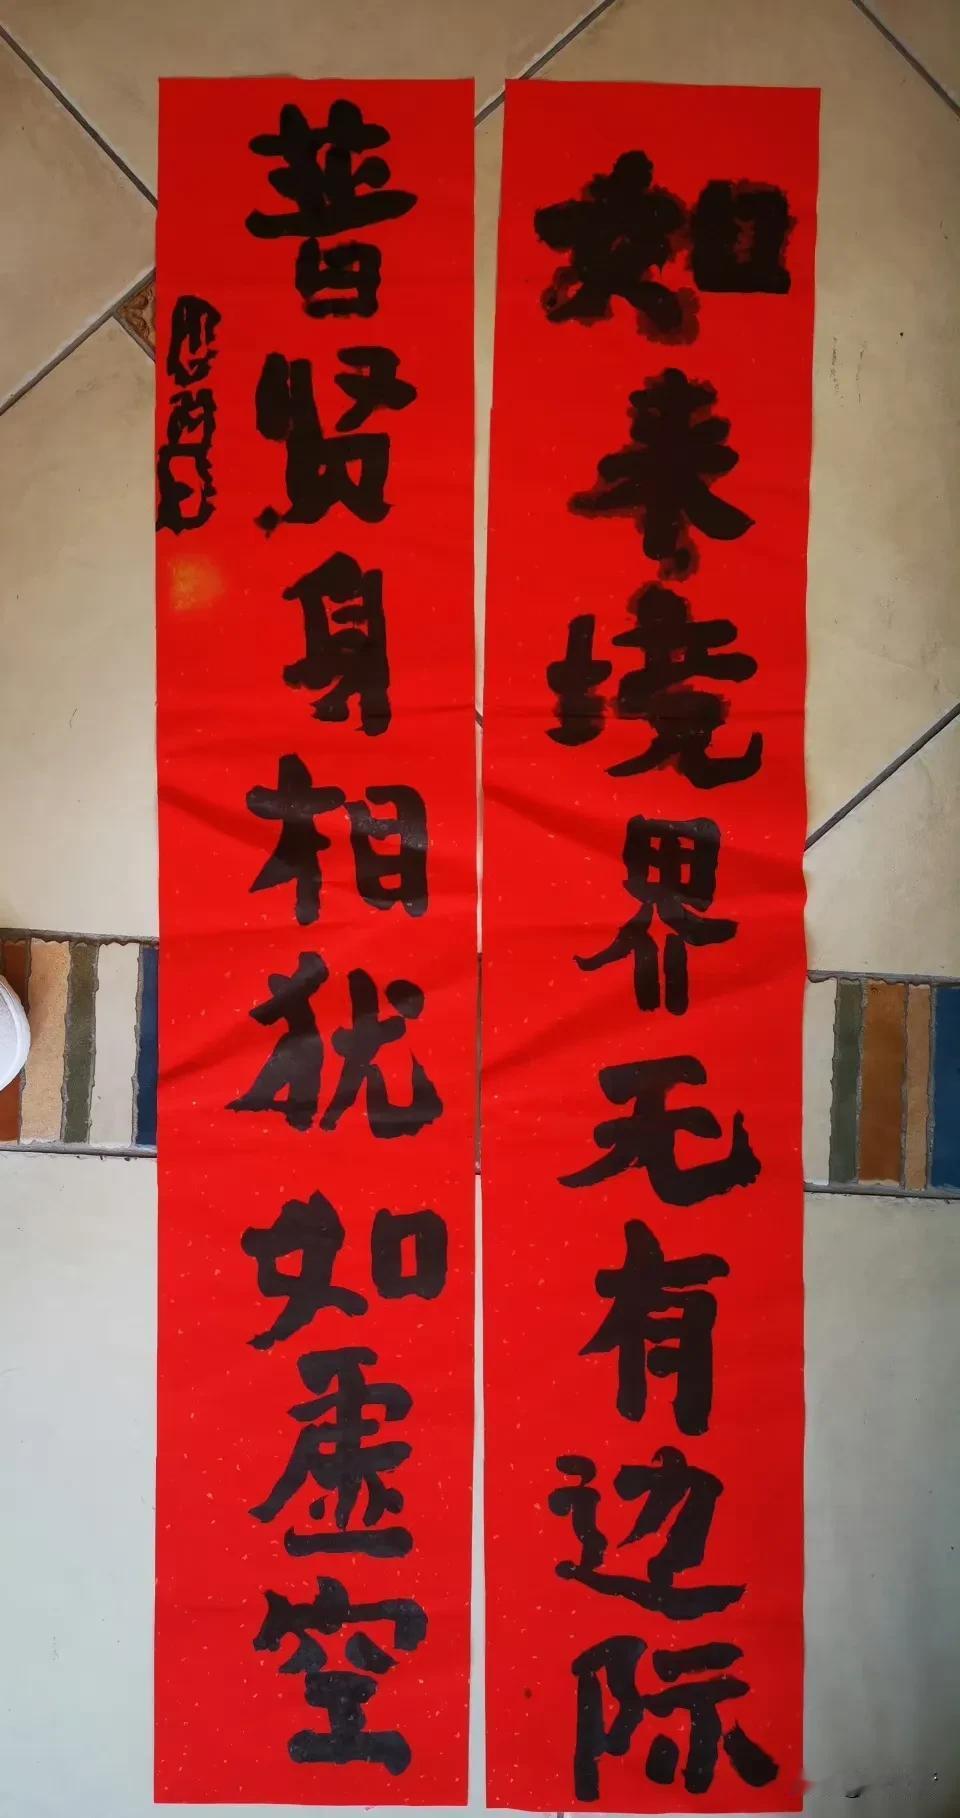 如来境界无有边际
普贤身相犹如虚空